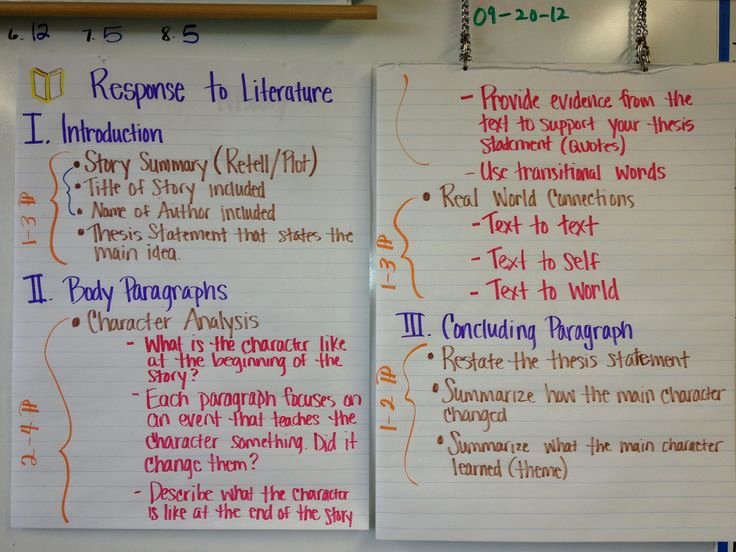 6. 12 7. 5 8. 5
09-20-12
Response to Literature
I. Introduction
1-3 ¶
• Story Summary (Retell/Plot)
• Title of Story included
• Name of Author included
• Thesis Statement that states the
main idea.
II. Body Paragraphs
2-4 ¶
• Character Analysis
- What is the character like
at the beginning of the
story?
- Each paragraph focuses on
an event that teaches the
character something. Did it
change them?
- Describe what the character
is like at the end of the story
- Provide evidence from the
text to support your thesis
statement (Quotes)
- Use transitional words
1-3 ¶
• Real World Connections
- Text to text
- Text to self
- Text to World
III. Concluding Paragraph
1-2 ¶
• Restate the thesis statement
• Summarize how the main character
changed
• Summarize what the main character
learned (theme)